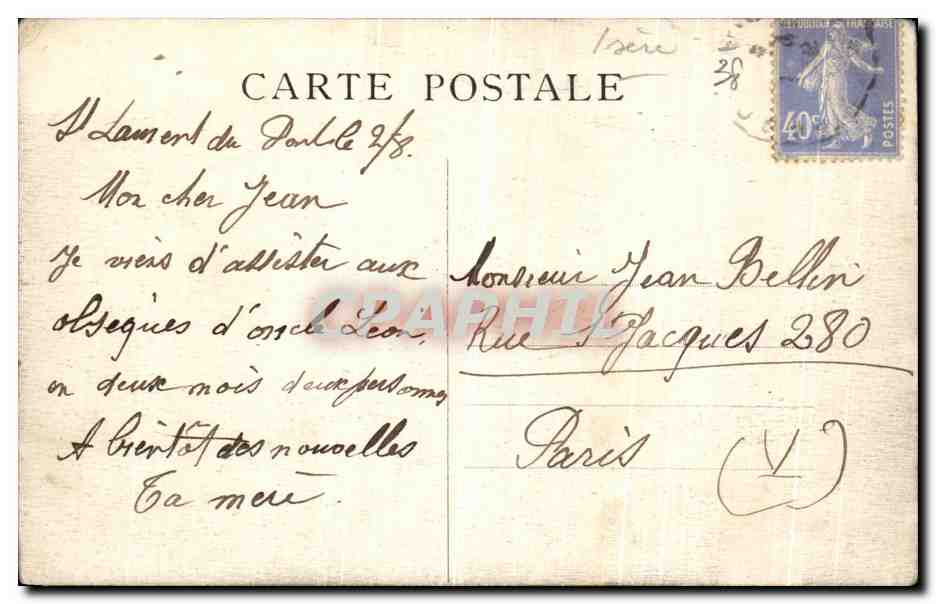 Isère
3/8
REPUBLIQUE FRANCAISE
40c
POSTES
CARTE POSTALE
St Laurent du Pont le 2/8.
Mon cher Jean
Je viens d'assister aux
obsèques d'oncle Léon,
en deux mois deux personnes
A bientôt des nouvelles
Ta mère.
Monsieur Jean Bellin
Rue St Jacques 280
Paris
(V)
CPAPHIL